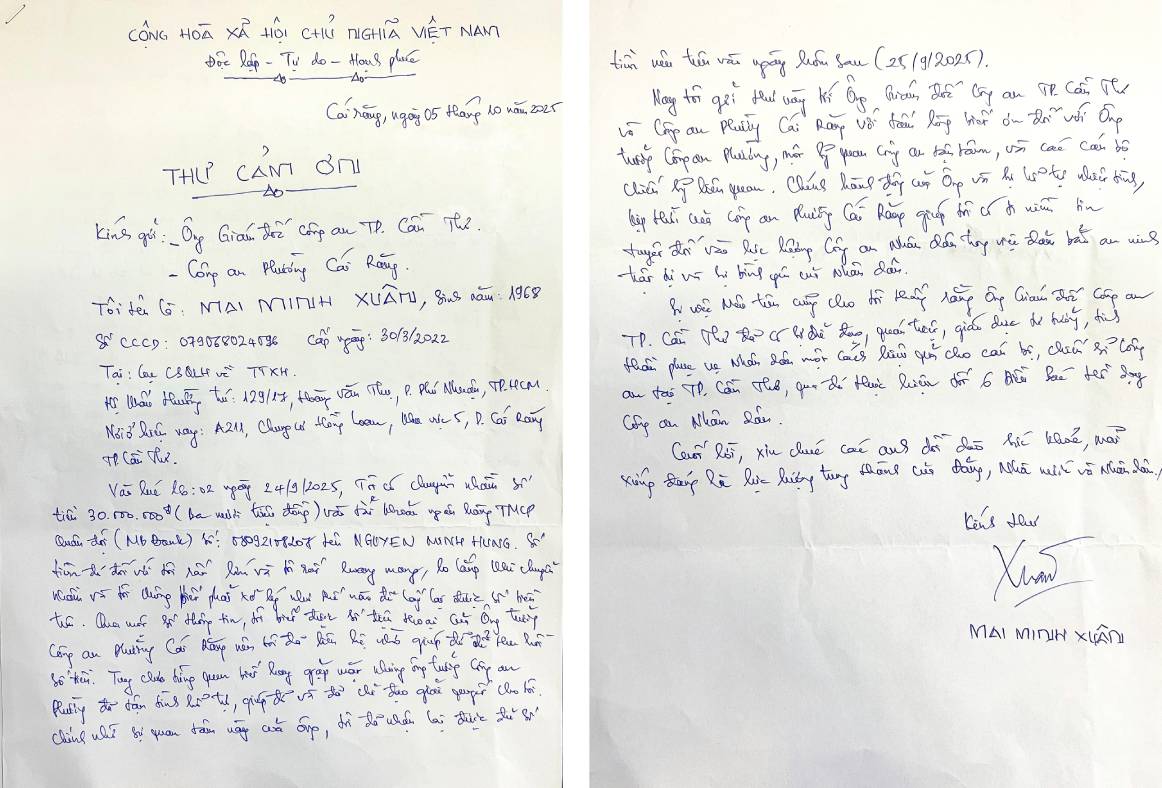 CỘNG HOÀ XÃ HỘI CHỦ NGHĨA VIỆT NAM
Độc lập - Tự do - Hạnh phúc
Cái Răng, ngày 05 tháng 10 năm 2025
THƯ CẢM ƠN
Kính gửi: - Ông Giám đốc Công an TP. Cần Thơ.
- Công an Phường Cái Răng.
Tôi tên là: MAI MINH XUÂN, sinh năm: 1968
Số CCCD: 079068024096 cấp ngày: 30/3/2022
Tại: Cục CSQLHC về TTXH.
Hộ khẩu thường trú: 129/17, Hoàng Văn Thụ, P. Phú Nhuận, TP.HCM.
Nơi ở hiện nay: A211, Chung cư Hồng Loan, khu vực 5, P. Cái Răng
TP. Cần Thơ.
Vào lúc 16:02 ngày 24/9/2025, Tôi có chuyển nhầm số
tiền 30.000.000đ (ba mươi triệu đồng) vào tài khoản ngân hàng TMCP
Quân đội (MB Bank) số: 08092108208 tên NGUYEN MINH HUNG. Số
tiền đó đối với tôi rất lớn và tôi rất hoang mang, lo lắng khi chuyển
nhầm và tôi không biết phải xử lý như thế nào để lấy lại được số tiền
trên. Qua một số thông tin, tôi biết được số điện thoại của Ông trưởng
Công an Phường Cái Răng nên tôi đã liên hệ nhờ giúp đỡ để thu hồi
số tiền. Tuy chưa từng quen biết hay gặp mặt nhưng ông trưởng Công an
Phường đã tận tình hỗ trợ, giúp đỡ và đã chỉ đạo giải quyết cho tôi.
Chính nhờ sự quan tâm này của ông, tôi đã nhận lại được đủ số
tiền nêu trên vào ngày hôm sau (25/9/2025).
Nay tôi gửi thư này tới Ông Giám đốc Công an TP. Cần Thơ
và Công an Phường Cái Răng với tấm lòng biết ơn đối với Ông
trưởng Công an Phường, một sỹ quan công an tận tâm, và các cán bộ
chiến sỹ liên quan. Chính hành động của Ông và sự hỗ trợ nhiệt tình,
kịp thời của Công an Phường Cái Răng giúp tôi có niềm tin
tuyệt đối vào lực lượng Công an Nhân dân trong việc đảm bảo an ninh
trật tự và sự bình yên của Nhân dân.
Sự việc nêu trên cũng cho tôi thấy rằng Ông Giám đốc Công an
TP. Cần Thơ đã có sự chỉ đạo, quán triệt, giáo dục tư tưởng, tinh
thần phục vụ Nhân dân một cách hiệu quả cho cán bộ, chiến sĩ Công
an tại TP. Cần Thơ, qua đó thực hiện tốt 6 Điều Bác Hồ dạy
Công an Nhân dân.
Cuối lời, xin chúc các anh dồi dào sức khỏe, mãi
xứng đáng là lực lượng trung thành của Đảng, Nhà nước và Nhân dân./.
Kính thư
Xuân
MAI MINH XUÂN